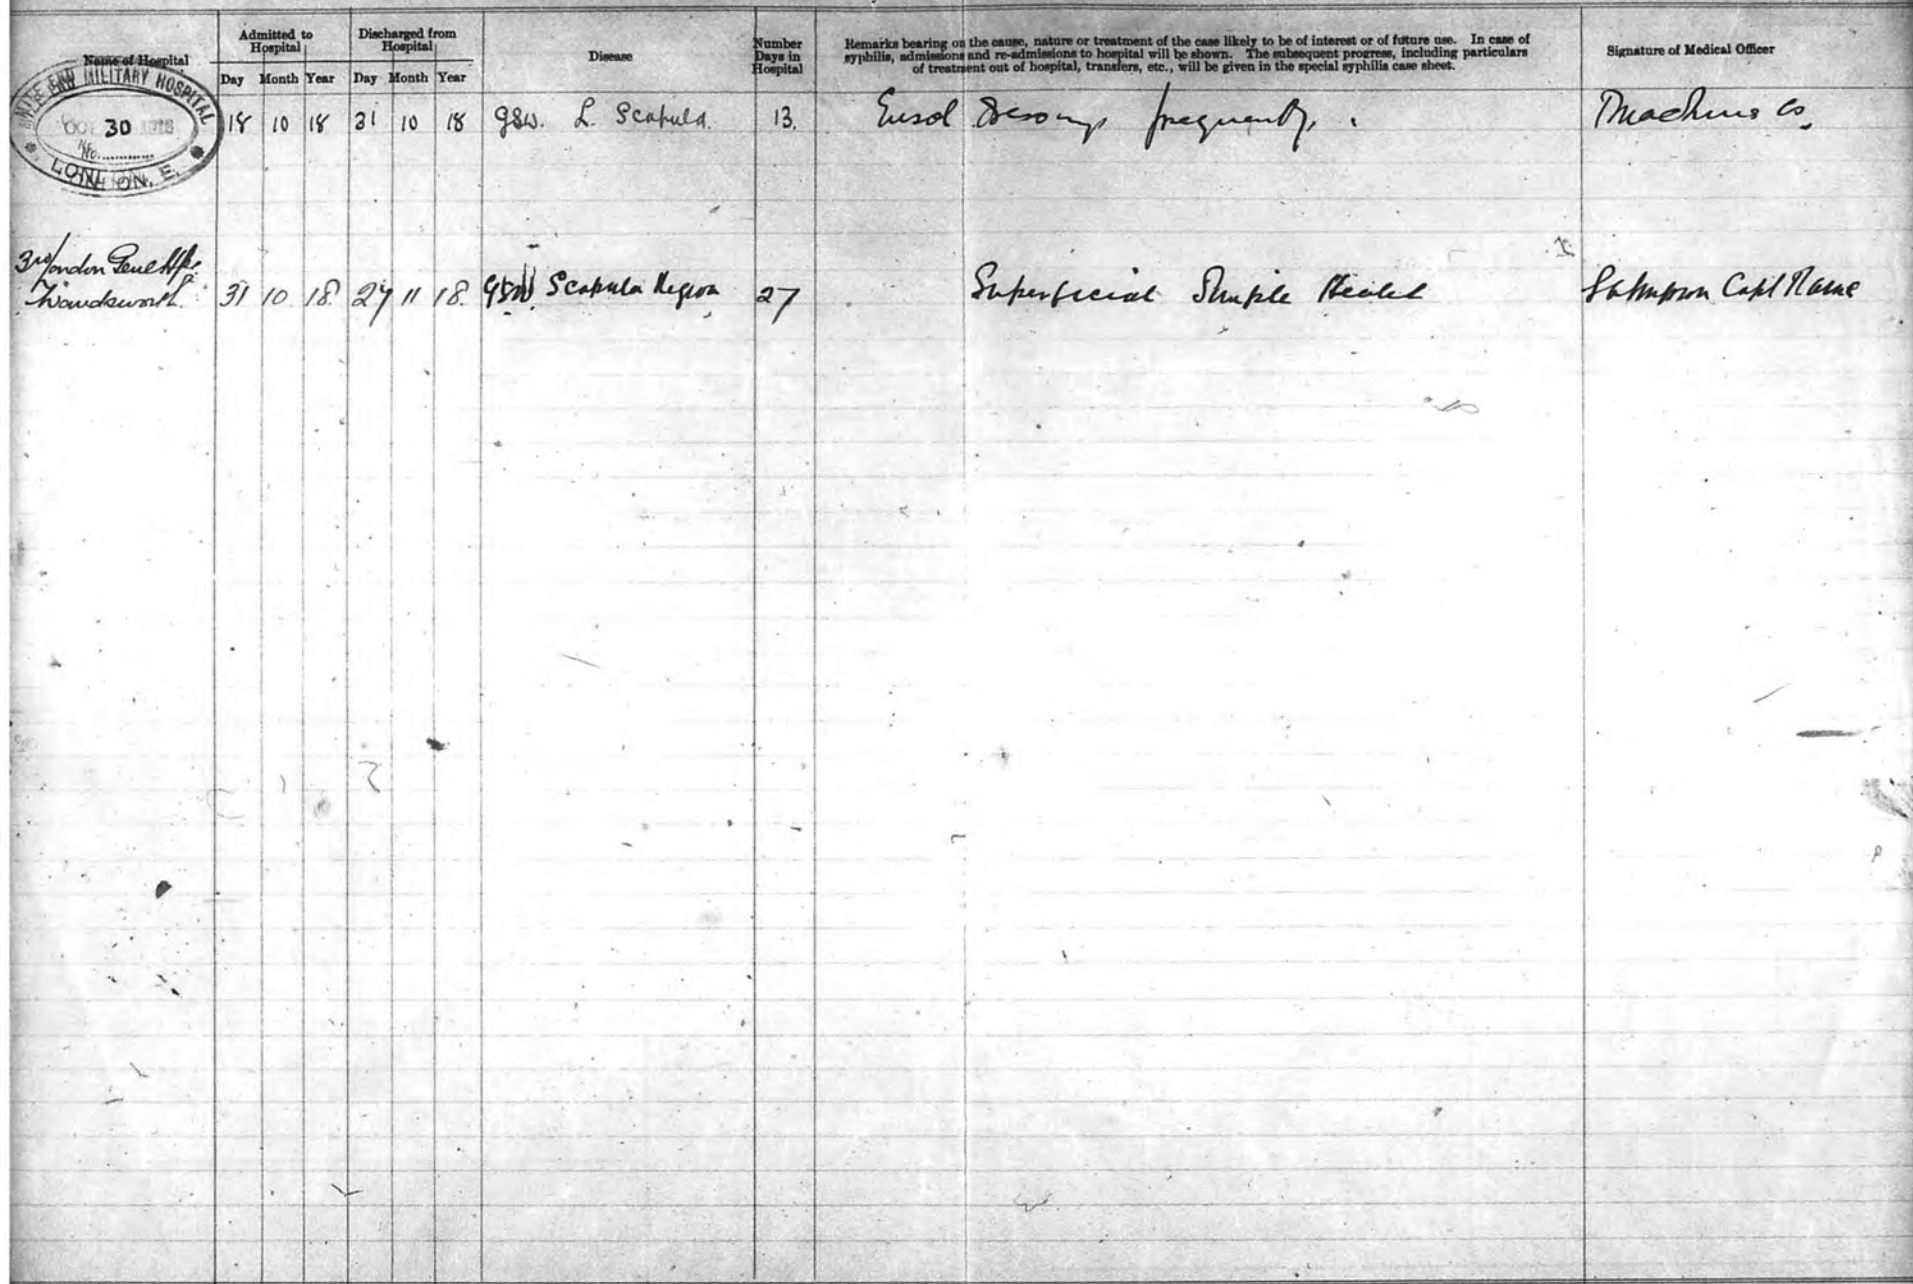 Name of Hospital
Admitted to Hospital
Discharged from Hospital
Disease
Number Days in Hospital
Remarks bearing on the cause, nature or treatment of the case likely to be of interest or of future use. In case of
syphilis, admissions and re-admissions to hospital will be shown. The subsequent progress, including particulars
of treatment out of hospital, transfers, etc., will be given in the special syphilis case sheet.
Signature of Medical Officer
Day Month Year Day Month Year
MILE END MILITARY HOSPITAL
OCT 30 1918
No.
LONDON, E.
18 10 18 31 10 18 GSW. L. Scapula. 13. Eusol dressings frequently.
3rd London Genl Hpl.
Wandsworth. 31 10 18 27 11 18. GSW Scapula Region 27 Superficial Simple Healed Capt Ramc